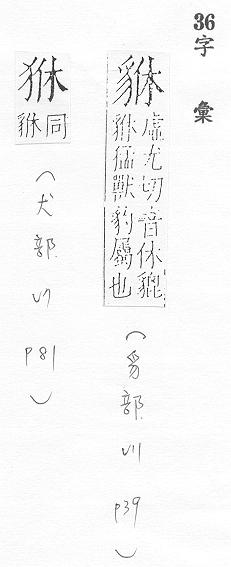 36
字彙
貅
虛尤切音休貔
貅猛獸豹屬也
(豸部
p39)
同貅
(犬部
p81)